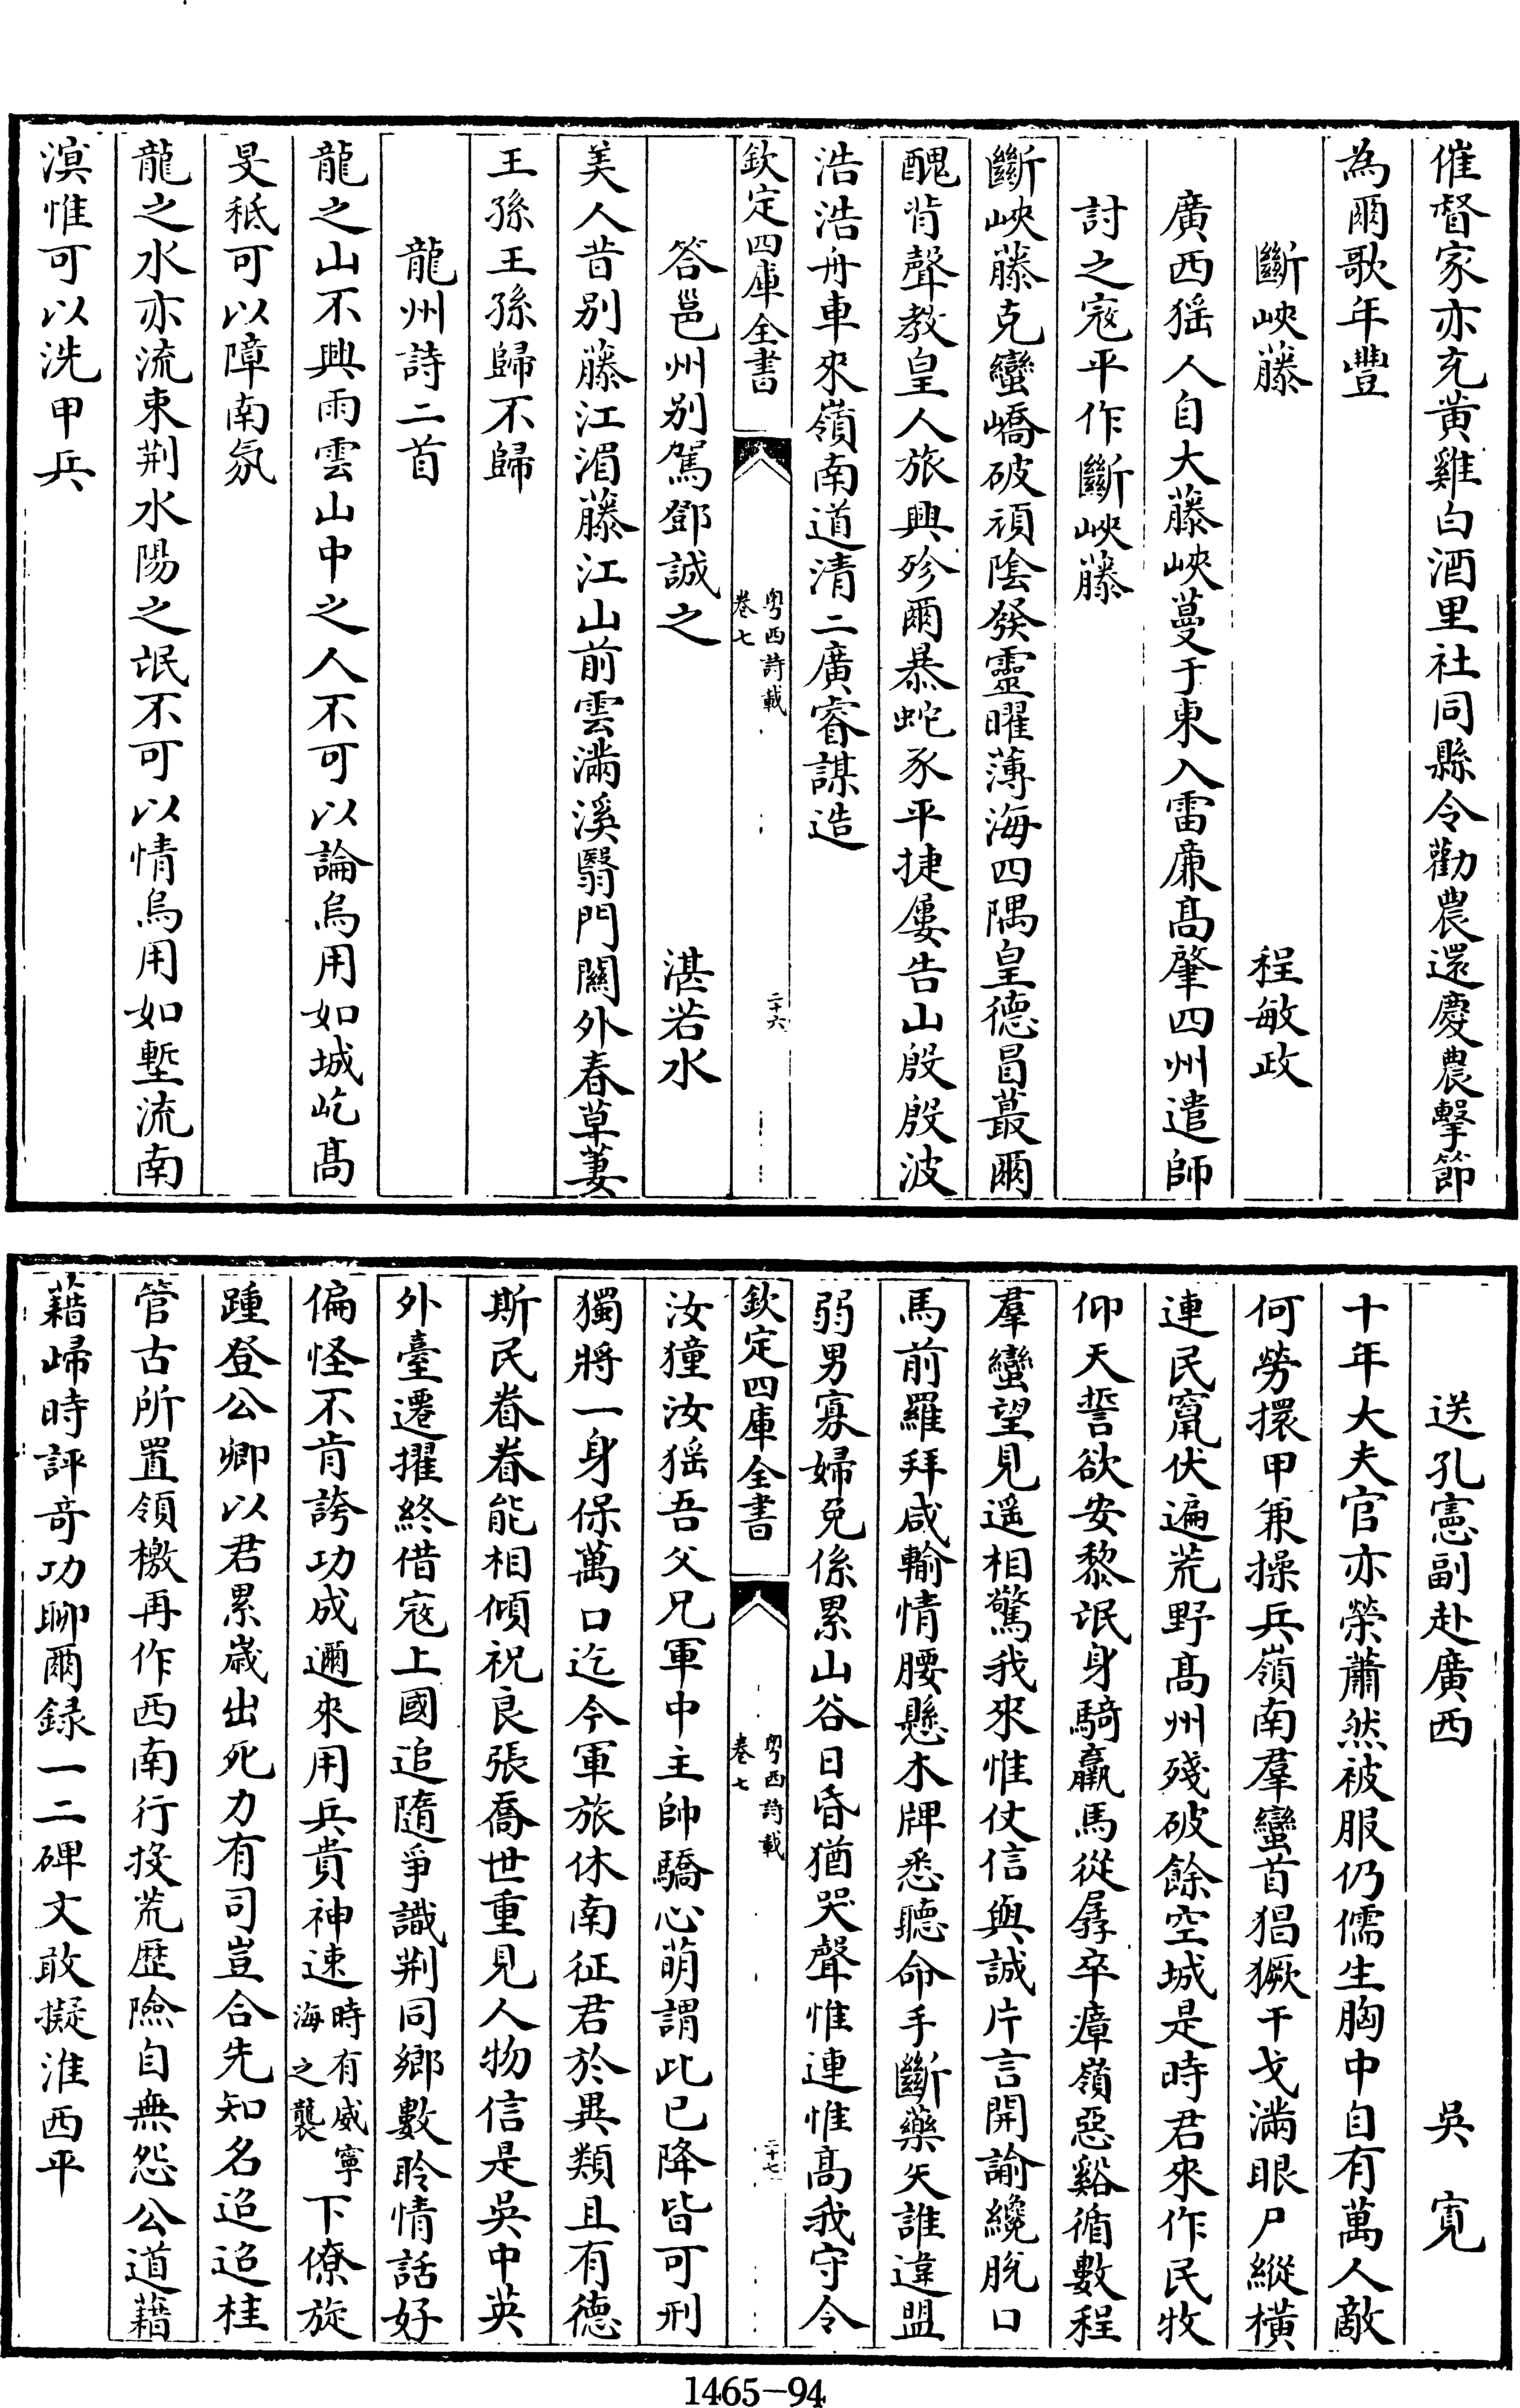 催督家亦充黄雞白酒里社同縣令勸農還慶農擊節
為爾歌年豐
斷峽藤 程敏政
廣西猺人自大藤峽蔓于東入雷亷髙肇四州遣師
討之寇平作斷峽藤
斷峽藤克蠻嶠破頑陰發靈曜薄海四隅皇德冒蕞爾
醜背聲教皇人旅興殄爾暴蛇豕平捷屢告山殷殷波
浩浩舟車來嶺南道清二廣睿謀造
欽定四庫全書 粤西詩載 卷七 二十六
答邕州别駕鄧誠之 湛若水
美人昔别藤江湄藤江山前雲滿溪翳門闗外春草萋
王孫王孫歸不歸
龍州詩二首
龍之山不興雨雲山中之人不可以論烏用如城屹髙
旻秪可以障南氛
龍之水亦流東荆水陽之氓不可以情烏用如塹流南
溟惟可以洗甲兵
送孔憲副赴廣西 吳寛
十年大夫官亦榮蕭然被服仍儒生胸中自有萬人敵
何勞擐甲兼操兵嶺南羣蠻首猖獗干戈滿眼尸縱横
連民竄伏遍荒野髙州殘破餘空城是時君來作民牧
仰天誓欲安黎氓身騎羸馬從孱卒瘴嶺惡谿循數程
羣蠻望見遥相驚我來惟仗信與誠片言開諭纔脱口
馬前羅拜咸輸情腰懸木牌悉聽命手斷藥矢誰違盟
弱男寡婦免係累山谷日昏猶哭聲惟連惟髙我守令
欽定四庫全書 粤西詩載 卷七 二十七
汝獞汝猺吾父兄軍中主帥驕心萌謂此已降皆可刑
獨將一身保萬口迄今軍旅休南征君於異類且有德
斯民眷眷能相傾祝良張喬世重見人物信是吳中英
外臺遷擢終借寇上國追隨爭識荆同鄉數聆情話好
偏怪不肯誇功成邇來用兵貴神速時有威寧海之襲下僚旋
踵登公卿以君累歲出死力有司豈合先知名迢迢桂
管古所置領檄再作西南行投荒歴險自無怨公道藉
藉歸時評竒功聊爾録一二碑文敢擬淮西平
1465—94